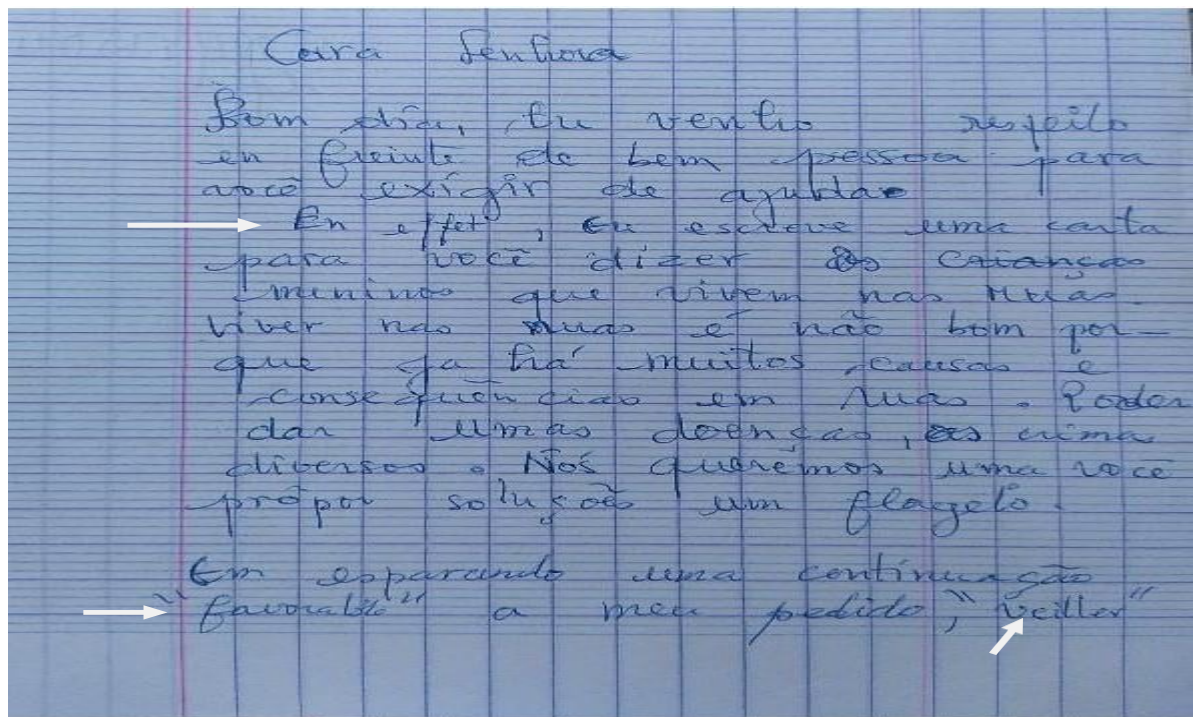 Cara Senhora
Bom dia, tu venho respeito
en freinte de bem pessoa para
a você exigir de ajudar
En effet, eu escreve uma carta
para você dizer as crianças
meninos que vivem nas ruas.
viver nas ruas é não bom por-
que ja há muitos causas e
consequências em ruas. Poder
dar umas doenças, as crima
diversos. Nós querémos uma você
própor soluções um flagelo.
Em esparando uma continuação
"favorable" a meu pedido, "veiller"